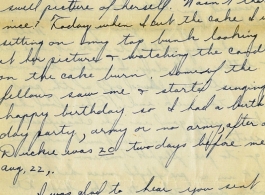 swell picture of herself. Wasn't that
nice? Today when I cut the cake I was
sitting on my top bunk looking
at her picture & watching the candles
on the cake burn. some of the
fellows saw me & started singing
happy birthday so I had a birth
day party, army or no army, after all
Duckie was 20 two days before me
aug, 22,.
I was glad to hear you sent